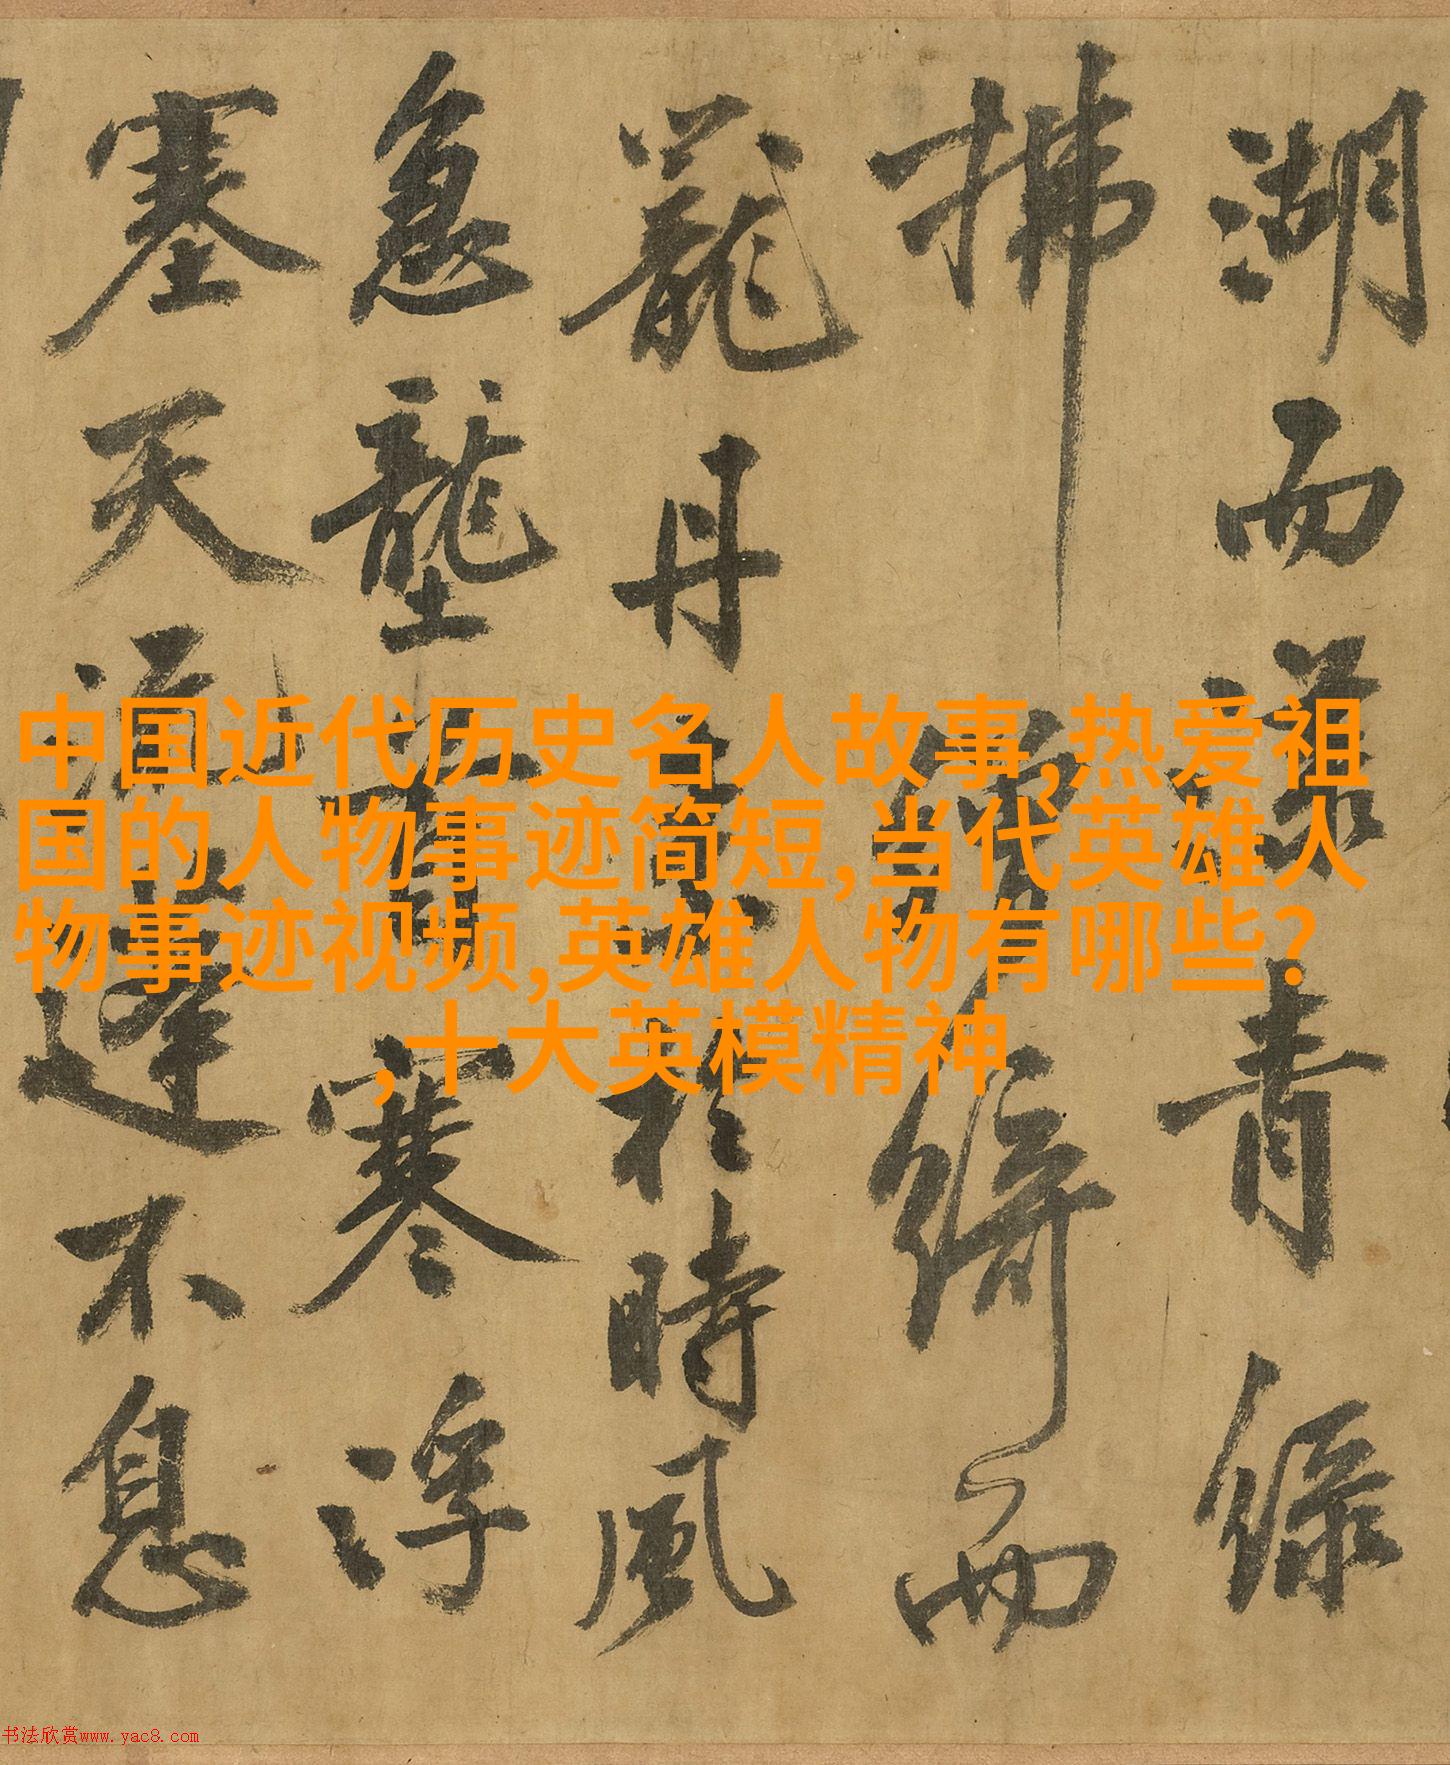 湖而漾青緑
拂綺而
蘢丹於時風
急壟寒浮
塞天蓬不息
中国近代历史名人故事,热爱祖
国的人物事迹简短,当代英雄人
物事迹视频,英雄人物有哪些?
,十大英模精神
书法欣赏www.yac8.com